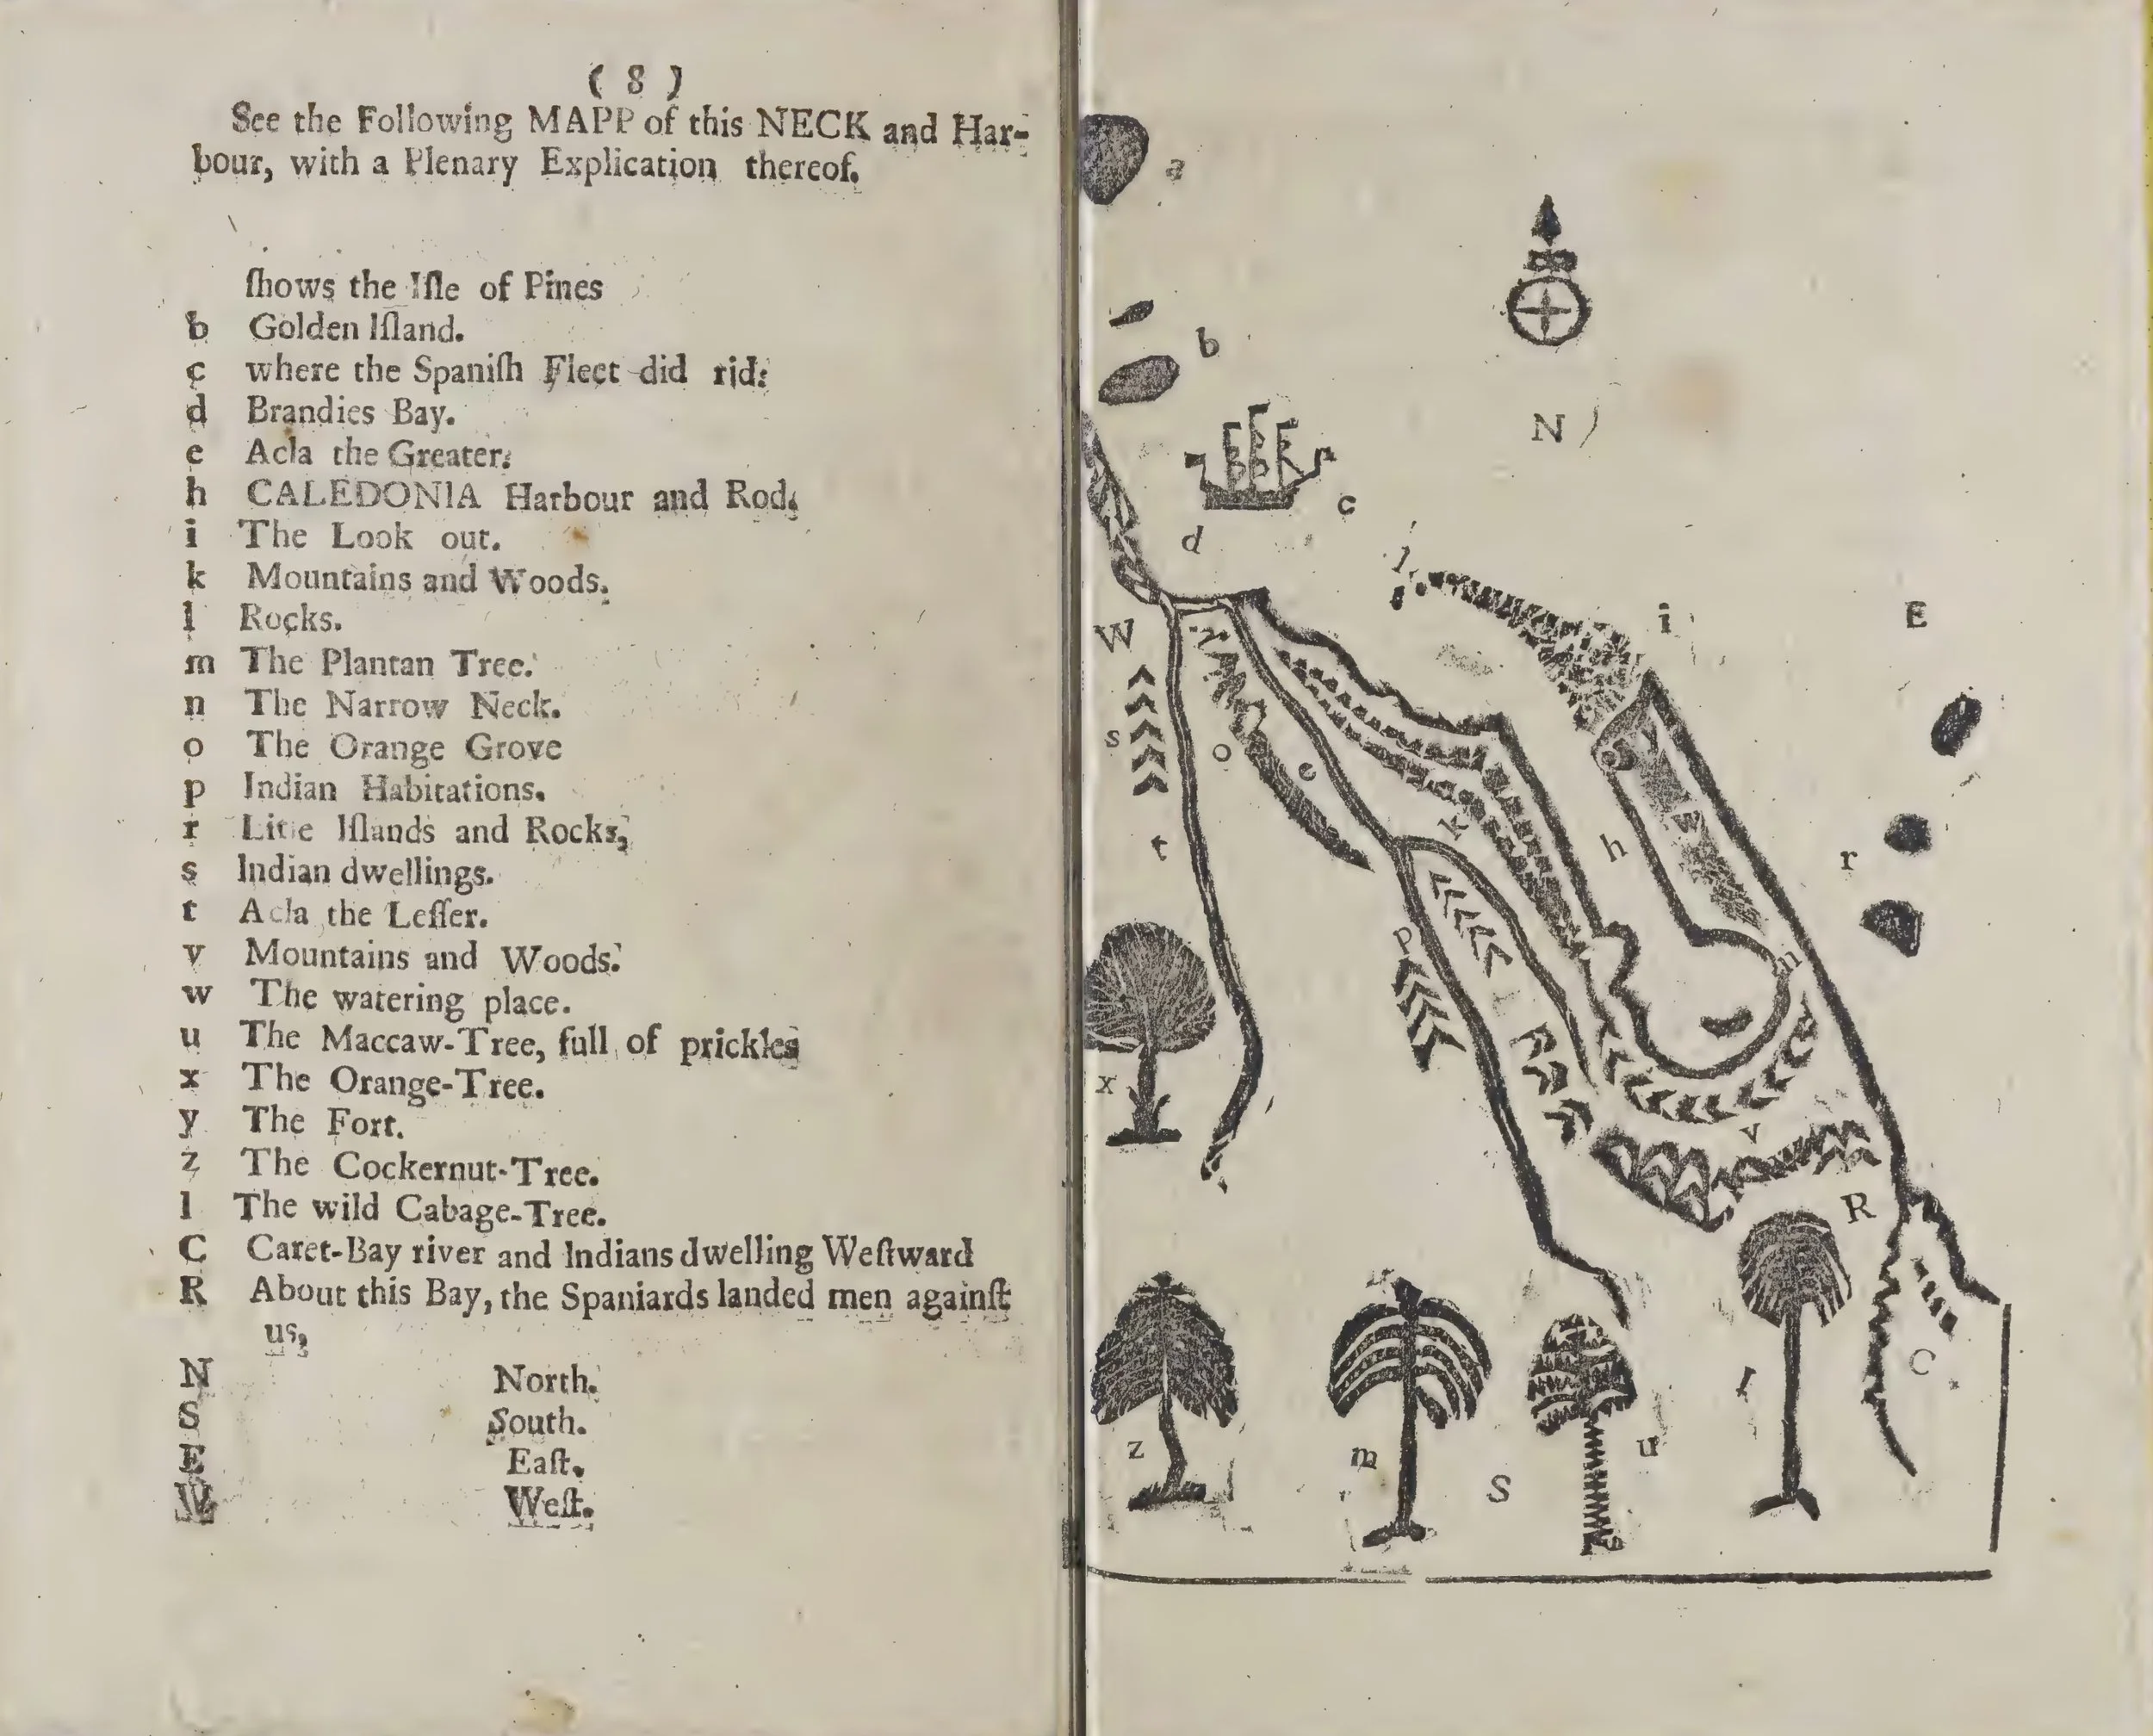 ( 8 )
See the Following MAPP of this NECK and Har-
bour, with a Plenary Explication thereof.
ſhows the Iſle of Pines
b Golden Iſland.
c where the Spaniſh Fleet did rid:
d Brandies Bay.
e Acla the Greater:
h CALEDONIA Harbour and Rod.
i The Look out.
k Mountains and Woods.
l Rocks.
m The Plantan Tree.
n The Narrow Neck.
o The Orange Grove
p Indian Habitations.
r Litle Iſlands and Rocks,
s Indian dwellings.
t Acla the Leſſer.
v Mountains and Woods.
w The watering place.
u The Maccaw-Tree, full of prickles
x The Orange-Tree.
y The Fort.
z The Cockernut-Tree.
l The wild Cabage-Tree.
C Caret-Bay river and Indians dwelling Weſtward
R About this Bay, the Spaniards landed men againſt
us,
N North.
S South.
E Eaſt.
W Weſt.
a
b
N
c
d
l
i
E
W
s
o
e
y
w
k
h
t
r
p
n
x
v
R
C
l
z
m
S
u